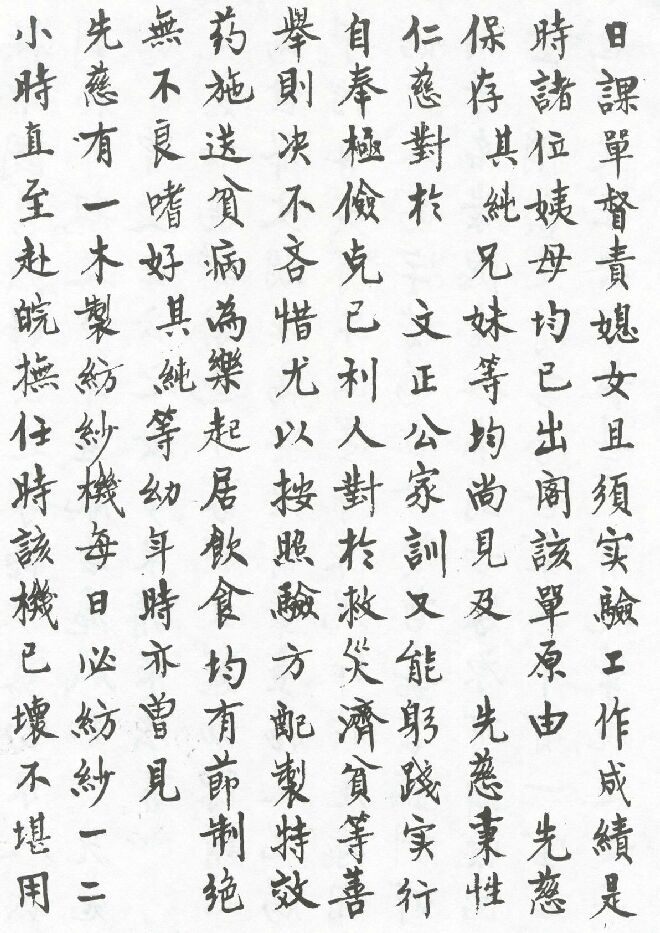 日課單督責媳女且須实驗工作成績是
時諸位姨母均已出阁該單原由　先慈
保存　其純兄妹等均尚見及　先慈秉性
仁慈對於　文正公家訓又能躬踐实行
自奉極儉克己利人對於救災濟貧等善
舉則决不吝惜尤以按照驗方配製特效
药施送貧病為樂起居飲食均有節制绝
無不良嗜好　其純等幼年時亦曾見
先慈有一木製紡紗機每日必紡紗一二
小時直至赴皖撫任時該機已壞不堪用